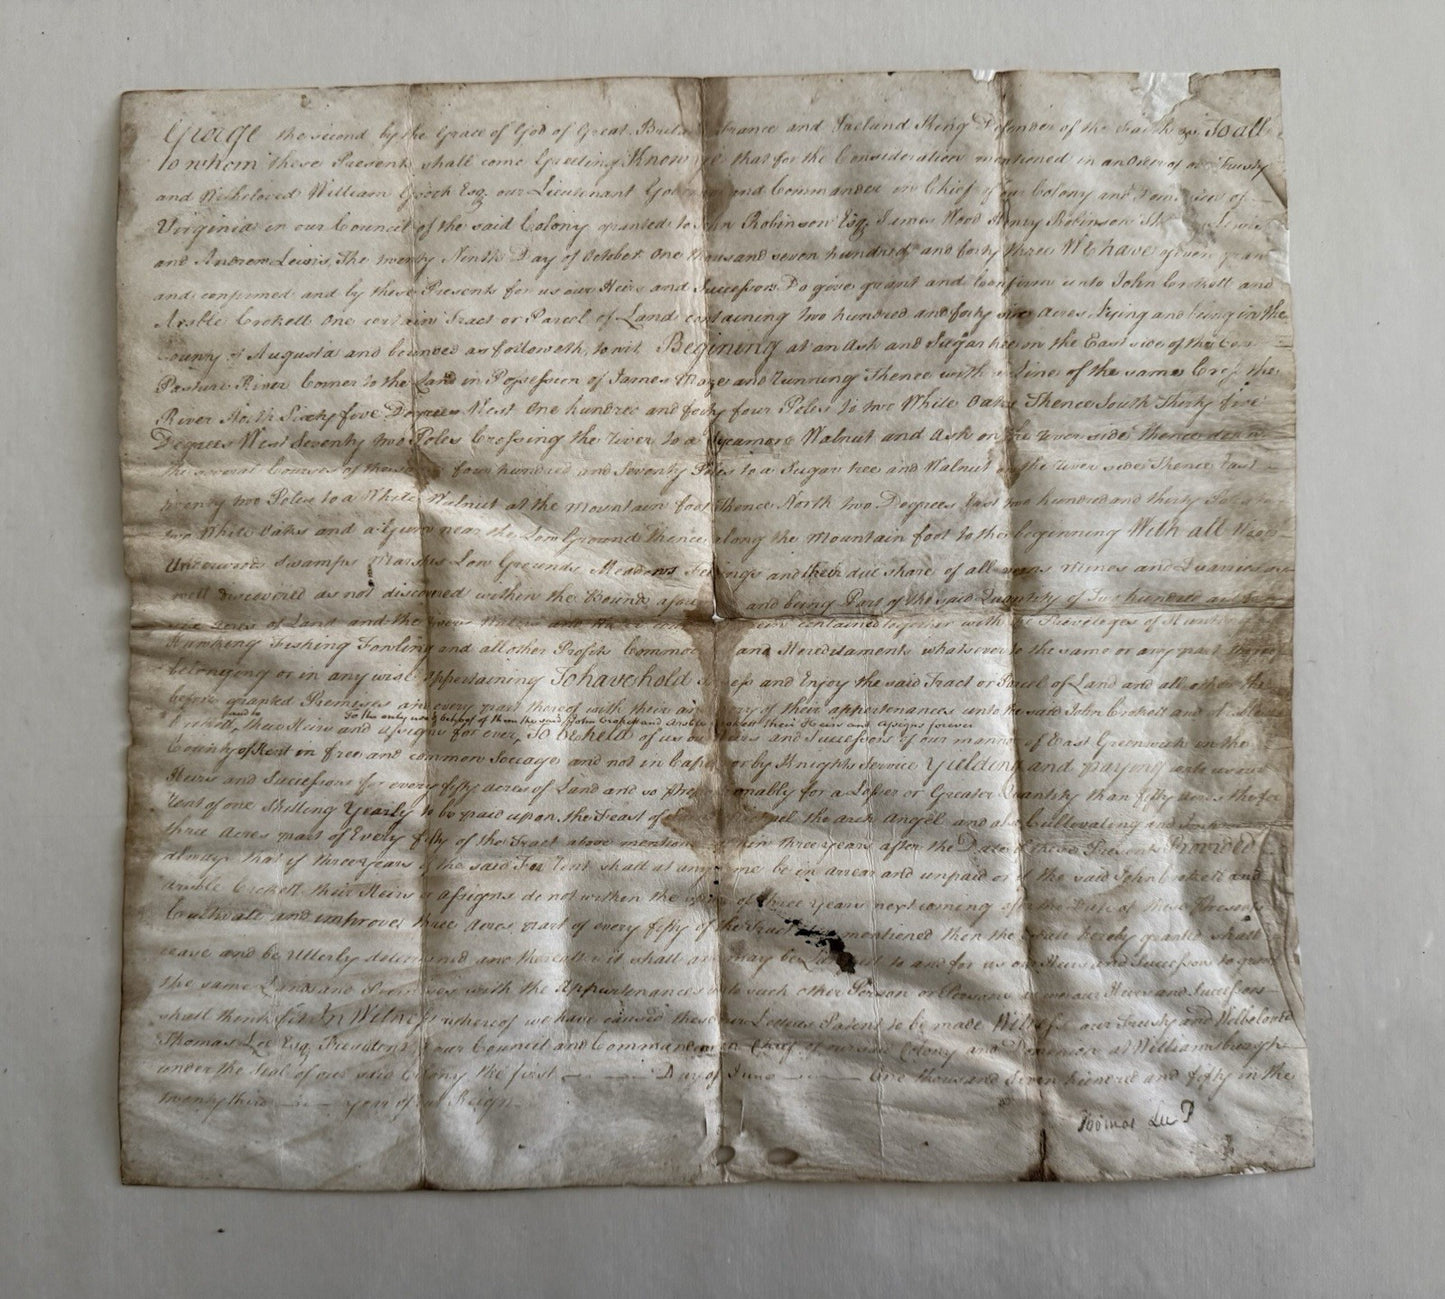 George the second by the Grace of God of Great Britain France and Ireland King Defender of the Faith &c To all
to whom these Presents shall come Greeting Know ye that for the Consideration mentioned in an Order of our Trusty
and Welbeloved William Gooch Esq. our Lieutenant Governor and Commander in Chief of our Colony and Dominion of
Virginia in our Council of the said Colony granted to John Robinson Esq. James Wood Henry Robinson Lewis
and Andrew Lewis, The twenty Ninth Day of October One thousand seven hundred and forty three We have given gran
and confirmed and by these Presents for us our Heirs and Successors Do give grant and Confirm unto John Crokett and
Arsble Crokett One certain Tract or Parcel of Land containing two hundred and forty acres lying and being in the
County of Augusta and bounded as followeth, to wit Begining at an Ash and Sugar tree on the East side of the Cow
Pasture River Corner to the Land in Possession of James and running Thence with a Line of the same Cross the
River North Sixty five Degrees West One hundred and forty four Poles to two White Oaks Thence South Thirty five
Degrees West Seventy two Poles Crossing the river to a Sycamore Walnut and Ash on the river side thence down
the several Courses of the same four hundred and Seventy Poles to a Sugar tree and Walnut on the river side Thence East
twenty two Poles to a White Walnut at the Mountain foot Thence North two Degrees East two hundred and thirty Poles to
two White Oaks and a Gum near the Low Ground Thence along the Mountain foot to the beginning With all Woods
Underwoods Swamps Marshes Low Grounds Meadows Feedings and their due share of all veins Mines and Quarries as
well discovered as not discovered within the Bounds afore and being Part of the said Quantity of Two hundred and
acres of Land and the contained together with the Privileges of Hunting
Hawking Fishing Fowling and all other Profits Commodities and Hereditaments whatsoever to the same or any part thereof
belonging or in any wise Appertaining To have hold Possess and Enjoy the said Tract or Parcel of Land and all other the
before granted Premises and every part thereof with their and every of their appertenances unto the said John Crokett and
to the only use & behoof of them the said John Crokett and Arsble Crokett their Heirs and assigns forever
Crokett, their Heirs and assigns for ever, To be held of us our Heirs and Successors of our mannor of East Greenwich in the
County of Kent in free and common Soccage and not in Capite or by Knights Service Yielding and paying unto us our
Heirs and Successors for every fifty acres of Land and so proportionably for a Lesser or Greater Quantity than fifty acres the fee
rent of one Shilling Yearly to be paid upon the Feast of Saint Michael the Arch Angel and also Cultivating and Improving
three Acres part of Every fifty of the Tract above mentioned within three years after the Date of these Presents Provided
always that if three years of the said Fee rent shall at any time be in arrear and unpaid or if the said John Crokett and
Arsble Crokett their Heirs or assigns do not within the space of three years next coming after the Date of these Presents
Cultivate and improve three Acres part of every fifty of the Tract above mentioned then the Estate hereby granted shall
cease and be Utterly determined and thereafter it shall and may be Lawfull to and for us our Heirs and Successors to grant
the same Lands and Premises with the Appurtenances unto such other Person or Persons as we our Heirs and Successors
shall think fit In Witness whereof we have caused these our Letters Patent to be made Witness our Trusty and Welbeloved
Thomas Lee Esq. President of our Council and Commander in Chief of our said Colony and Dominion at Williamsburgh
under the Seal of our said Colony the first Day of June One thousand Seven hundred and fifty in the
twenty third year of our Reign
Thomas Lee P